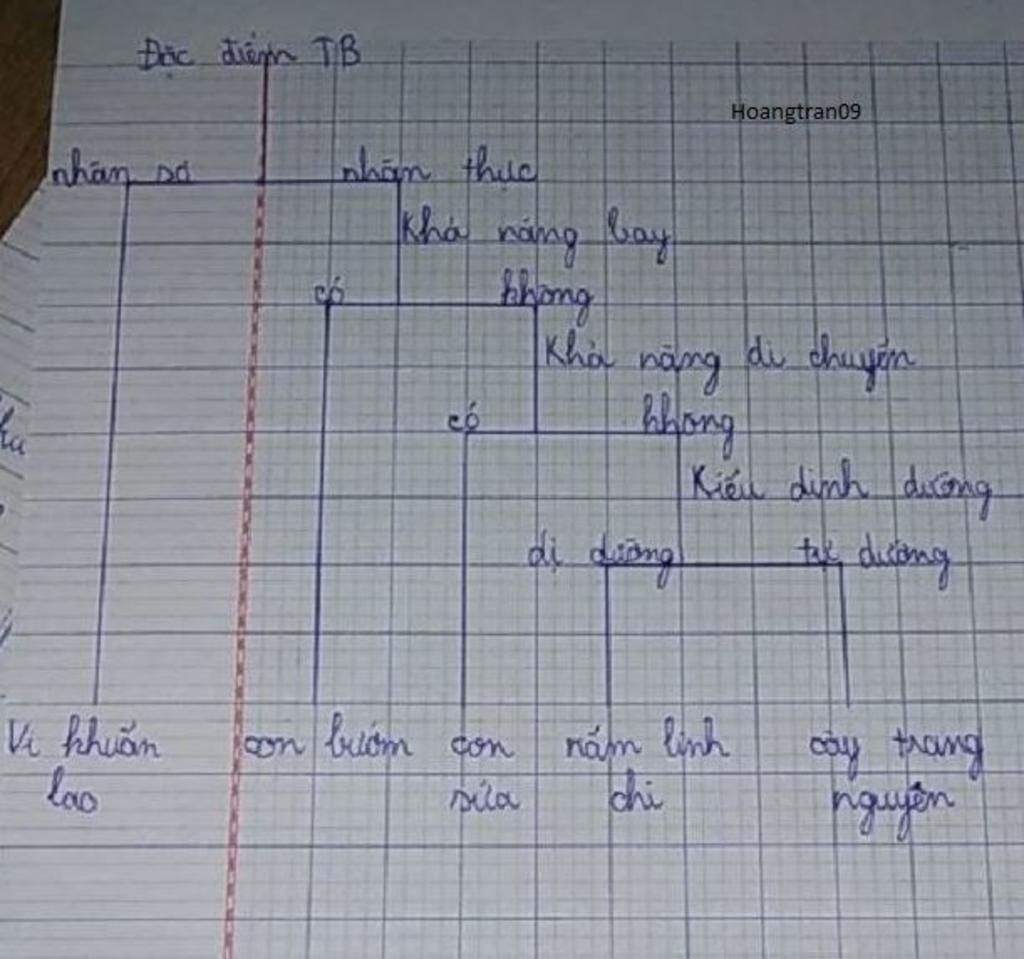 Đặc điểm TB
Hoangtran09
nhân sơ nhân thực
Khả năng bay
có không
Khả năng di chuyển
có không
Kiểu dinh dưỡng
dị dưỡng tự dưỡng
Vi khuẩn con bướm con nấm linh cây trạng
lao sứa chi nguyên